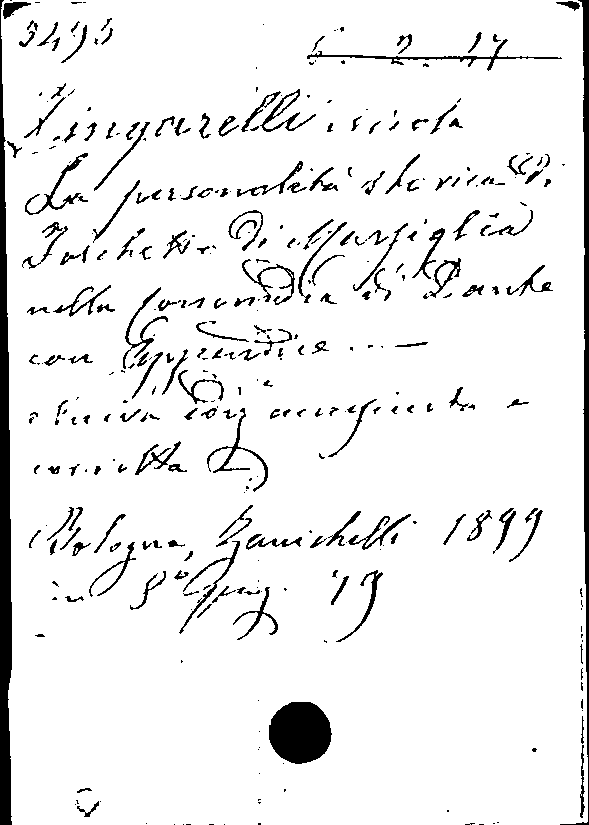 3493
6. 2. 47
Zingarelli Nicola
La personalità storica di
Folchetto di Marsiglia
nella Commedia di Dante
con Appendice ....—
nuova ediz accresciuta e
corretta
Bologna, Zanichelli 1899
in 8° pag. 79